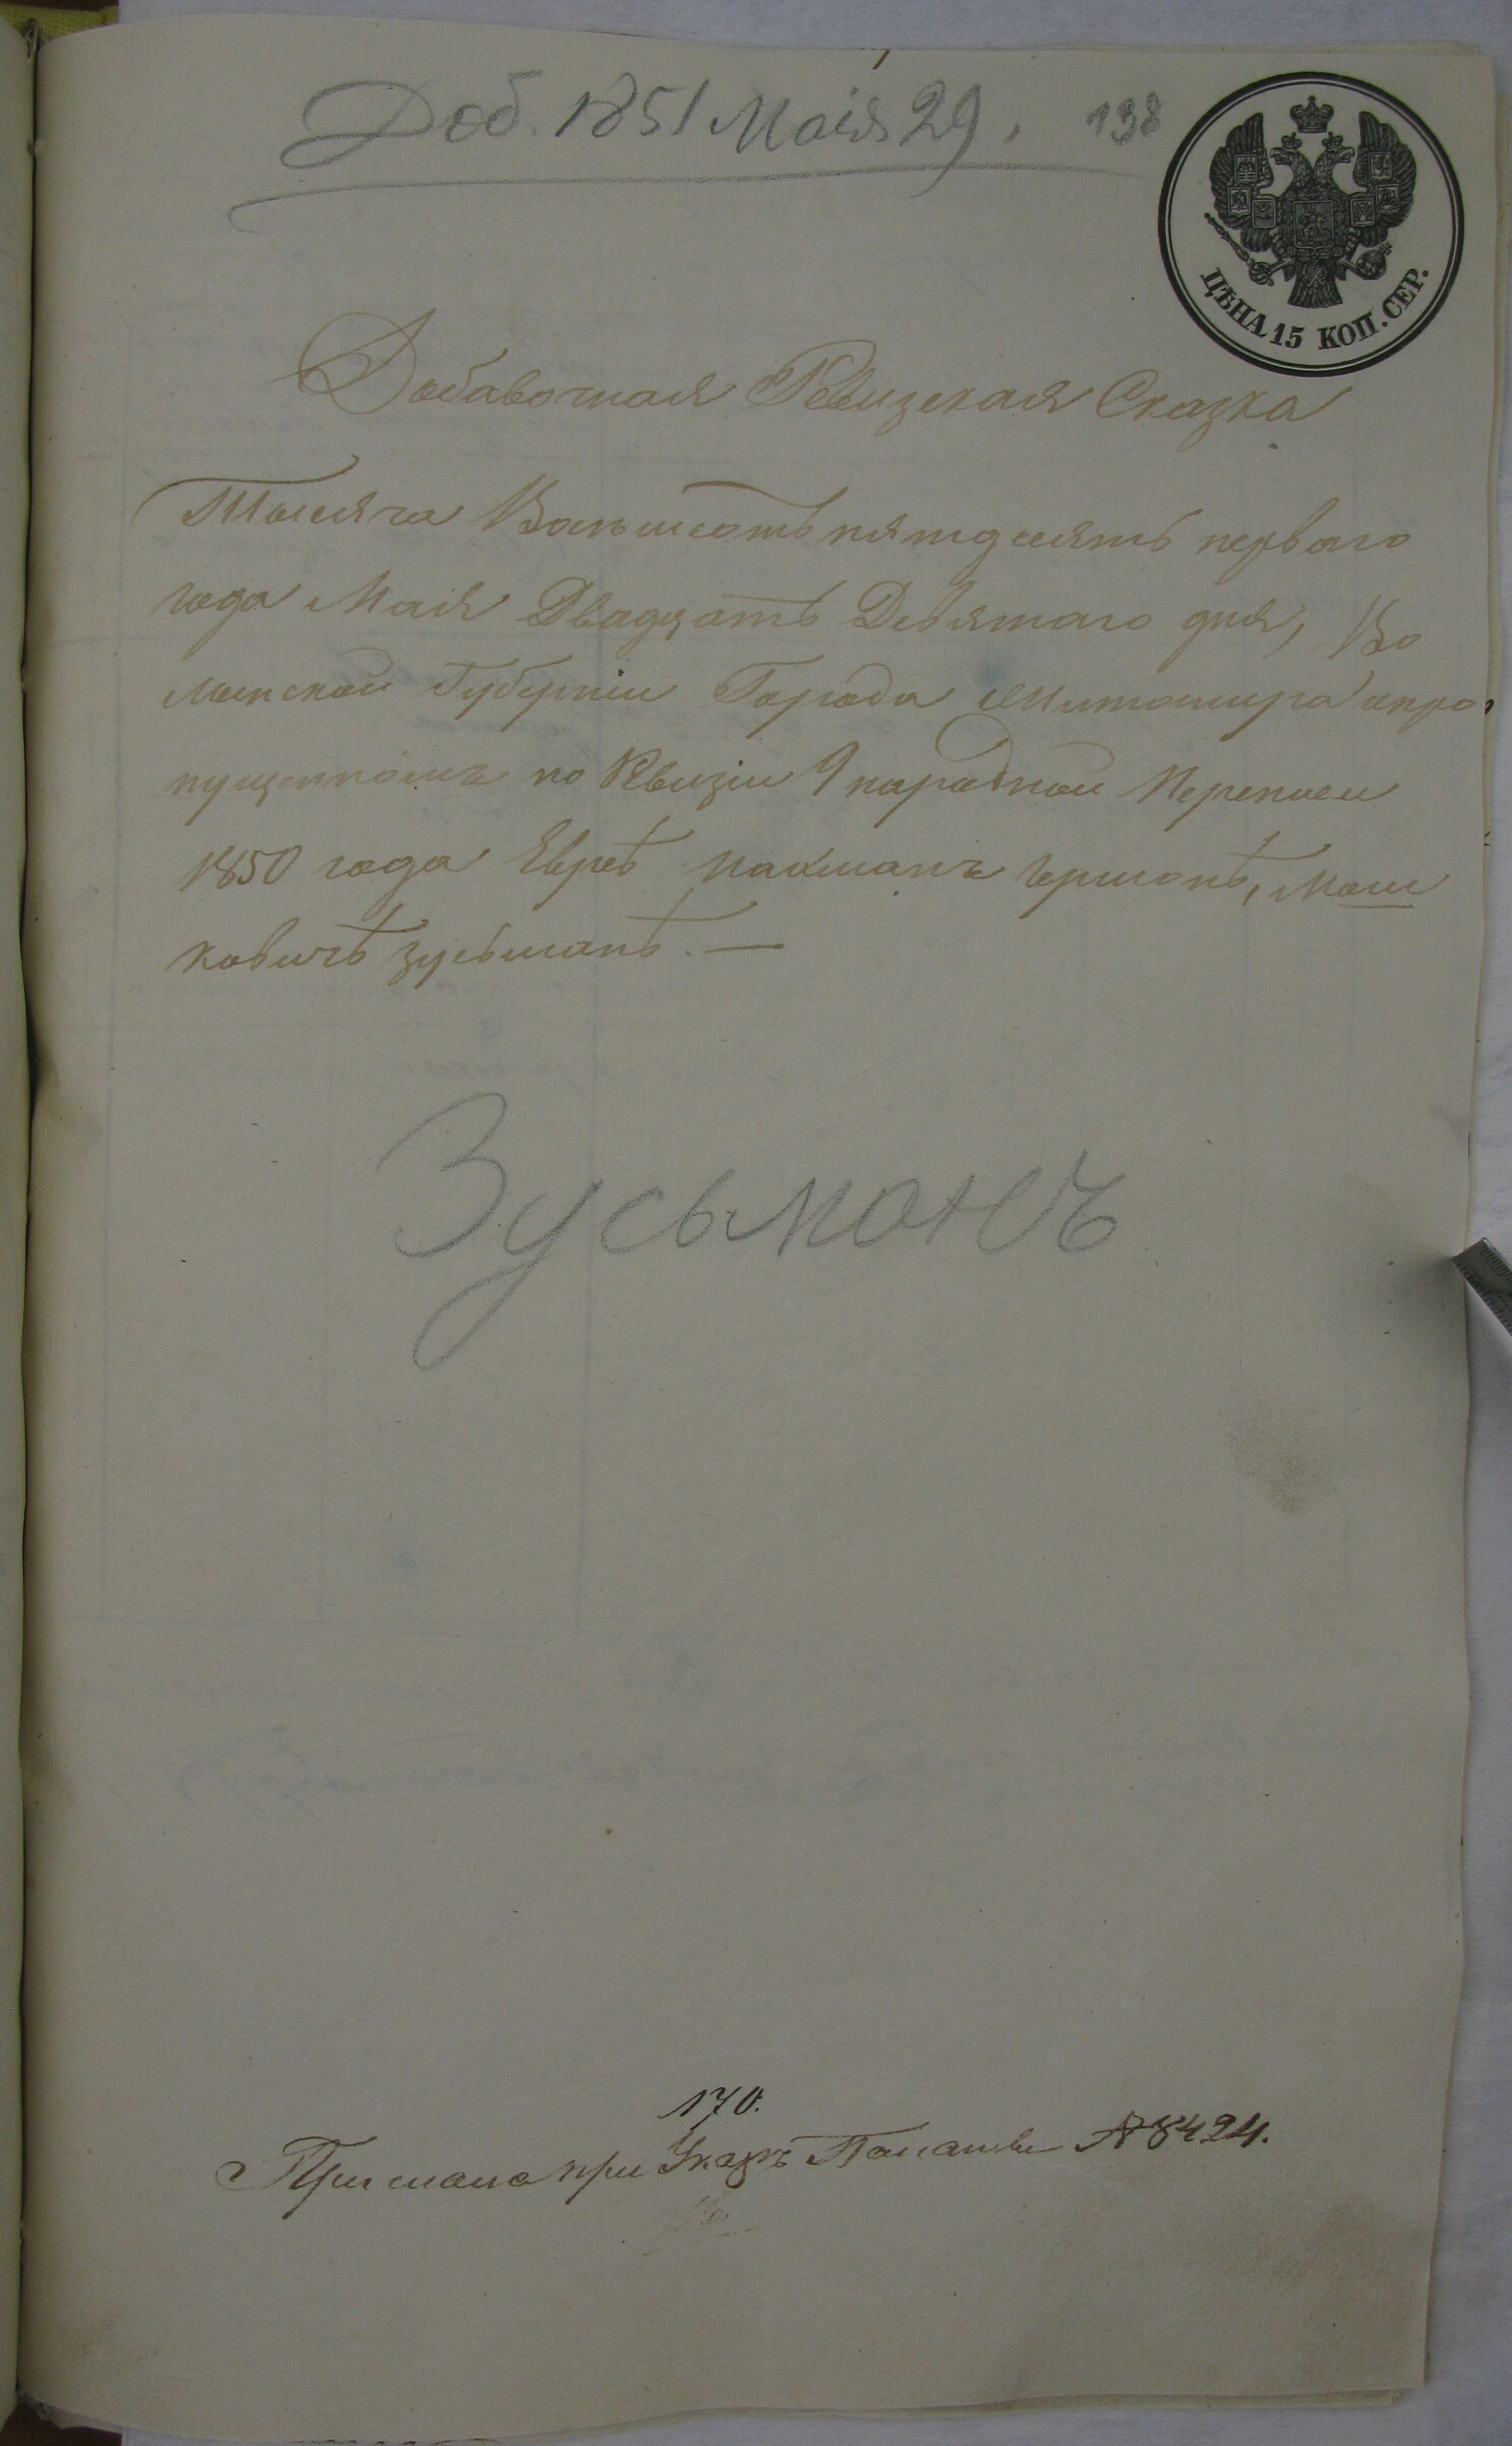 Доб. 1851 Маія 29. 138
ЦѢНА 15 КОП. СЕР.
Добавочная Ревизская Сказка
Тысяча Восьмсотъ пятдесятъ перваго
года Маія Двадцать Девятаго дня, Во
лынской Губерніи Города Житомира опро
пущенномъ по Ревизіи 9 народной Переписи
1850 года Евреѣ Нахманъ Гершонъ, Мош
ковичъ Зусьманъ. —
Зусьманъ
170.
Прислана при Указѣ Палаты № 8424.